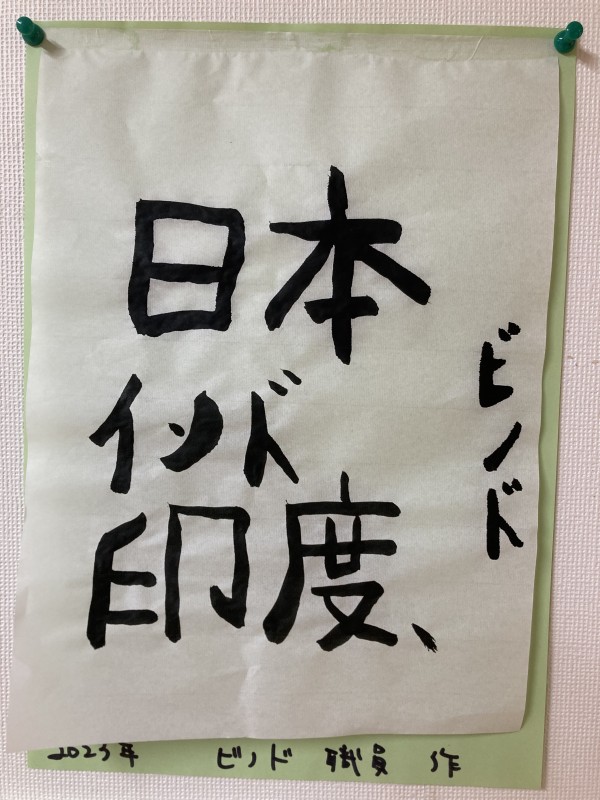 日本
インド
印度、
ビノド
2023年 ビノド 職員 作